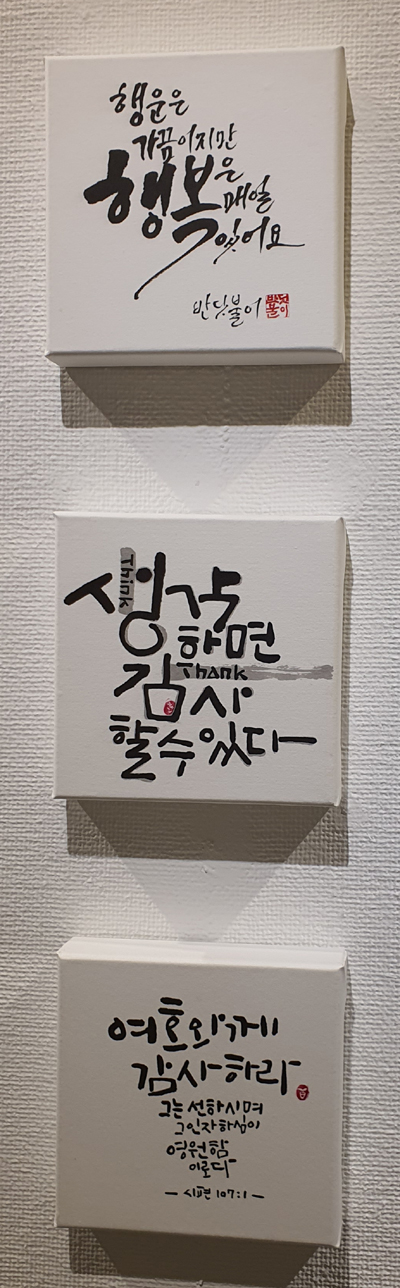 행운은
가끔이지만
행복은
매일
있어요
반딧불이
반딧
불이
Think
생각
하면
Thank
감사
할수있다
여호와께
감사하라
그는 선하시며
그 인자하심이
영원함
이로다
- 시편 107:1 -